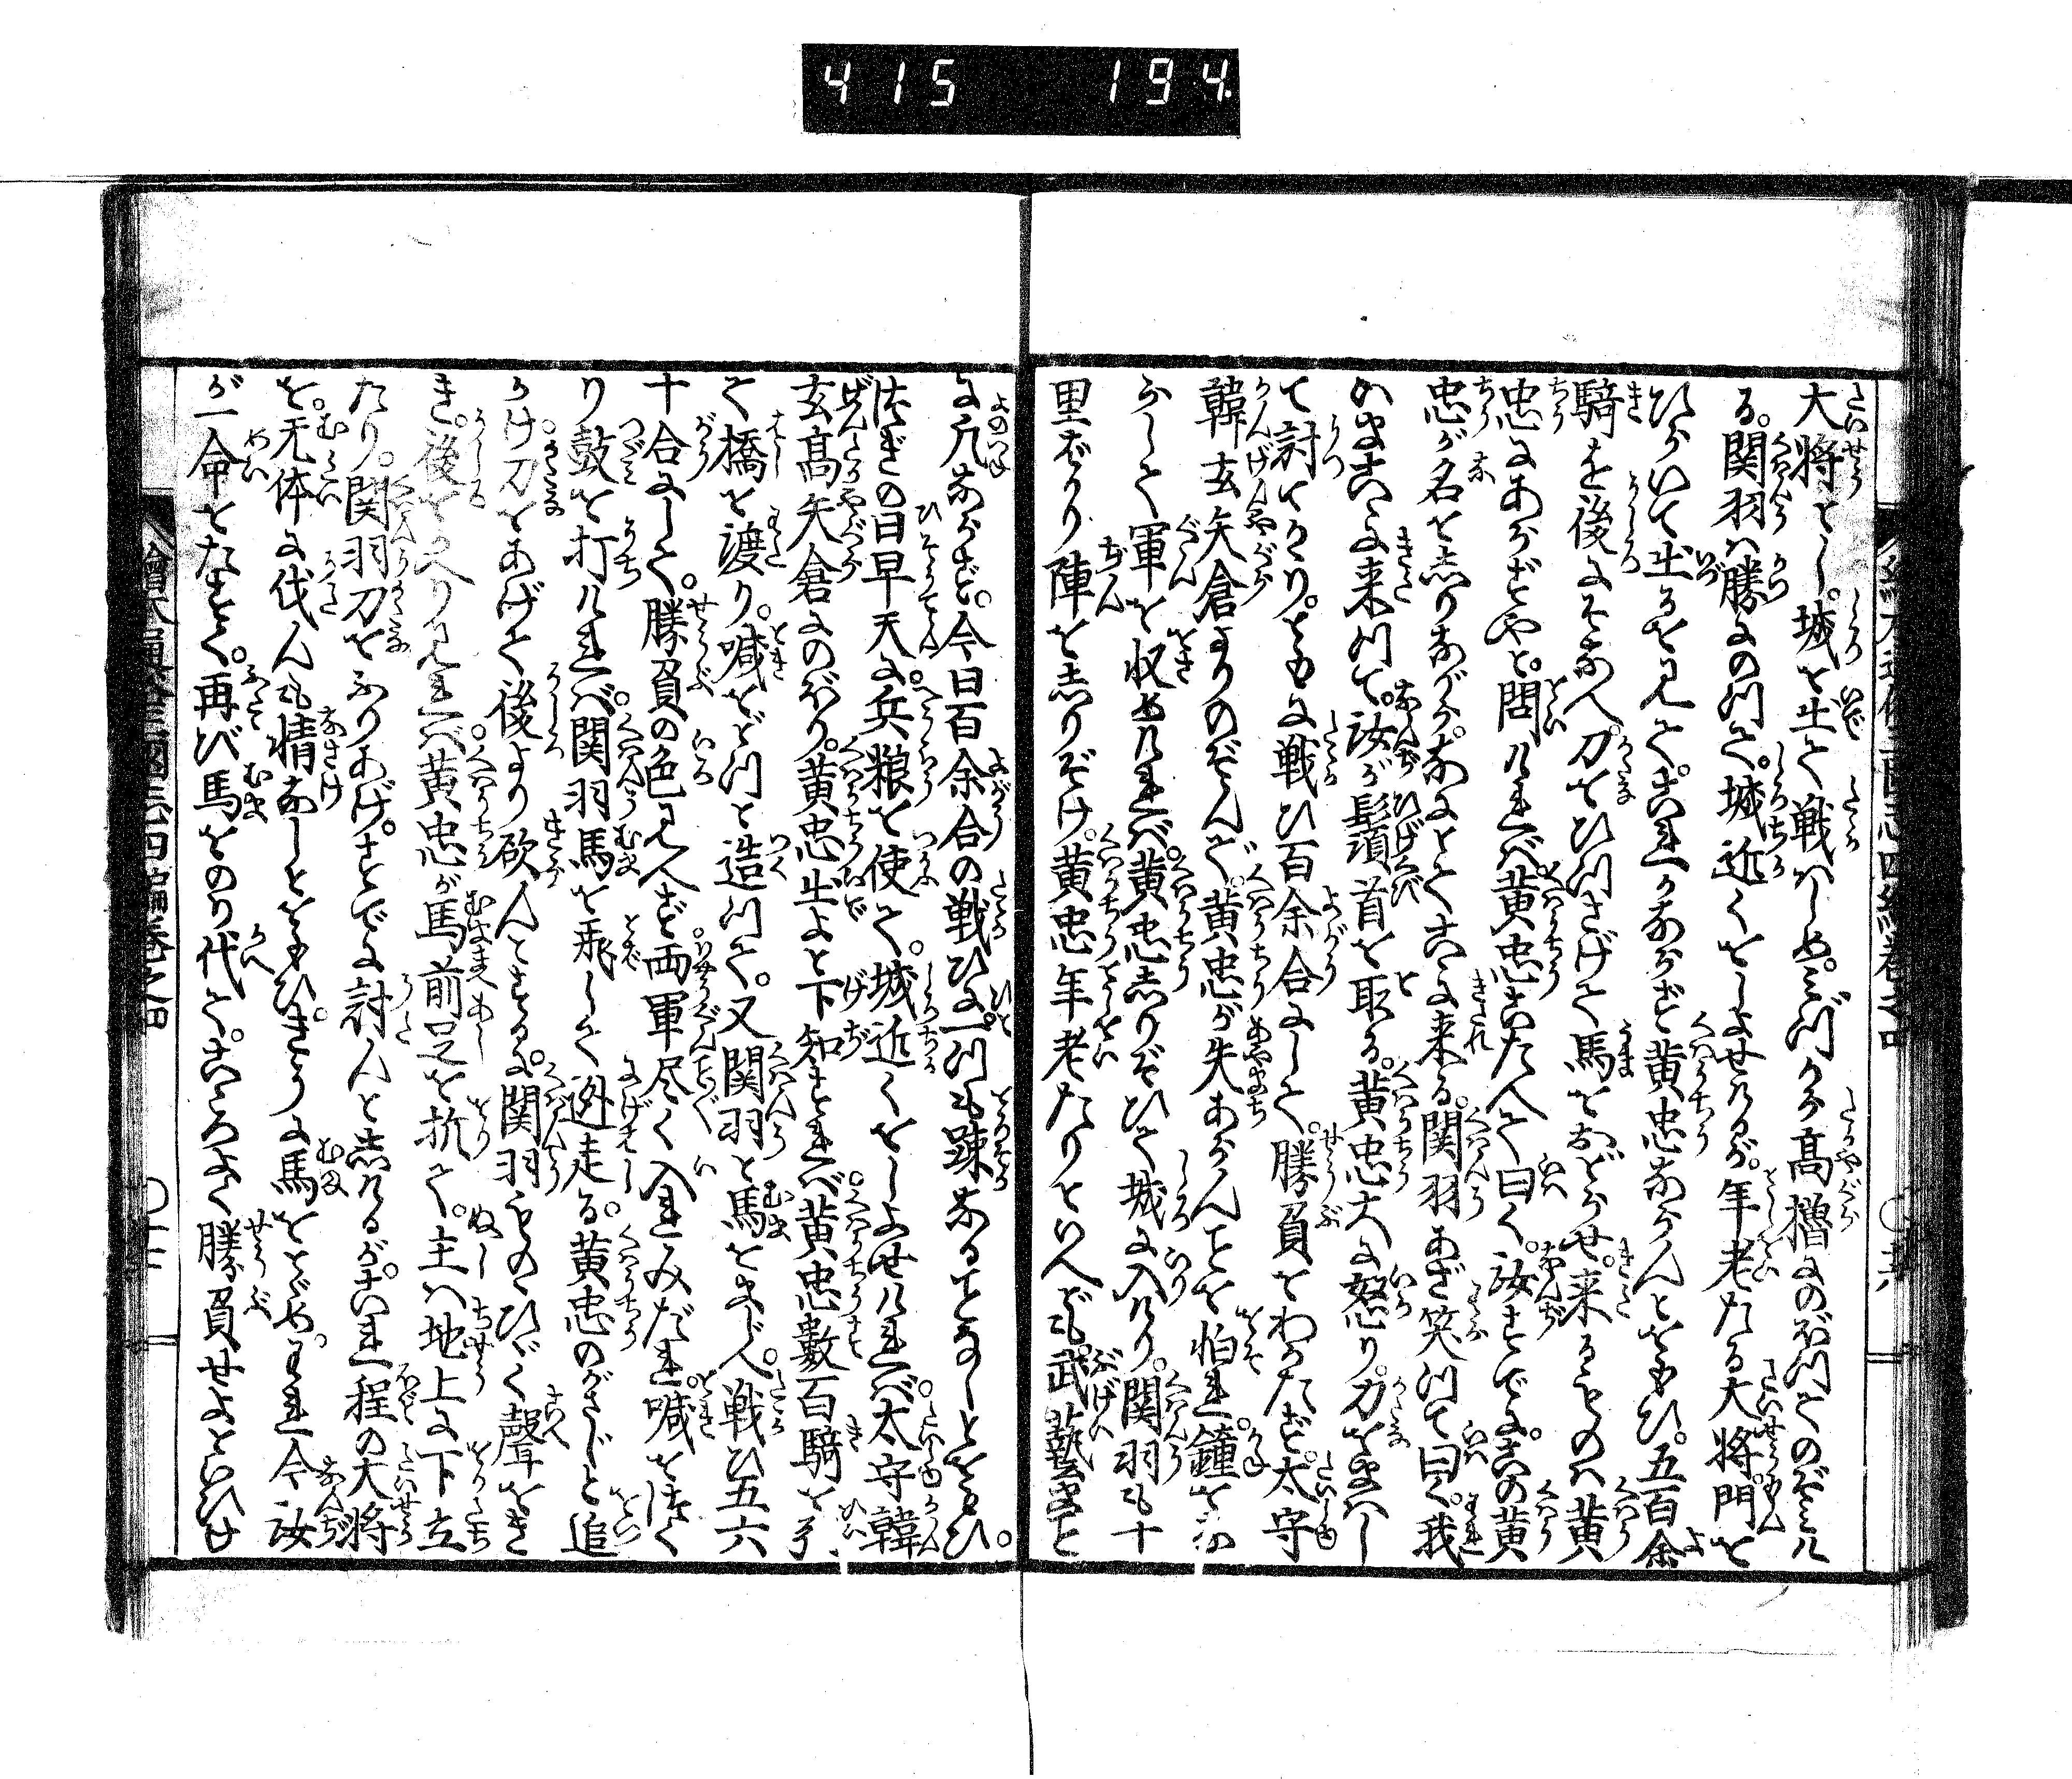 415 194
大将とし。城を出て戦はしめ。みづから高櫓にのぼつてのぞみけ
る。関羽は勝にのつて。城近くをしよせけるが。年老たる大将。門を
ひらいて出るを見て。これかならず黄忠ならんとをもひ。五百余
騎を後にそなへ刀をひつさげて馬をおどらせ。来るものは黄
忠にあらずやと。問ければ黄忠こたへて曰く。汝すでに。この黄
忠が名をしりながら。なにとてこゝに来る。関羽あざ笑つて曰く。我
のまこゝに来つて。汝が髭首を取る。黄忠大に怒り。刀をまはし
て討てかゝり。ともに戦ひ百余合にして。勝負をわかたず。太守
韓玄矢倉よりのぞんで。黄忠が失あらんことを怕れ。鐘を
ならして軍を収めければ。黄忠しりぞひて城に入けり。関羽も十
里ばかり陣をしりぞけ。黄忠年老たりといへども。武藝まこと
に凡ならず。今日百余合の戦ひに。一つも疎なることなしとをもひ。
つぎの日早天に。兵粮を使て。城近くをしよせければ。太守韓
玄高矢倉にのぼり。黄忠出よと下知すれば。黄忠数百騎を引
て橋を渡り。喊をどつと造つて。又関羽と馬をまじへ。戦ひ五六
十合にして。勝負の色見へず。両軍尽く入みだれ。喊をつく
り鼓を打ければ。関羽馬を飛して逃走る。黄忠のがさじと追
かけ刀をあげて後より砍んとするに。関羽ものゝひゞく聲をき
き。後をかへり見れば。黄忠が馬前足を折て。主は地上に下立
たり。関羽刀をふりあげ。すでに討んとしけるが。これ程の大将
を。无体に伐んも情なしとをもひ。きうに馬をとゞめ。われ今汝
が一命をたすく。再び馬をのり代て。こゝろよく勝負せよといひけ